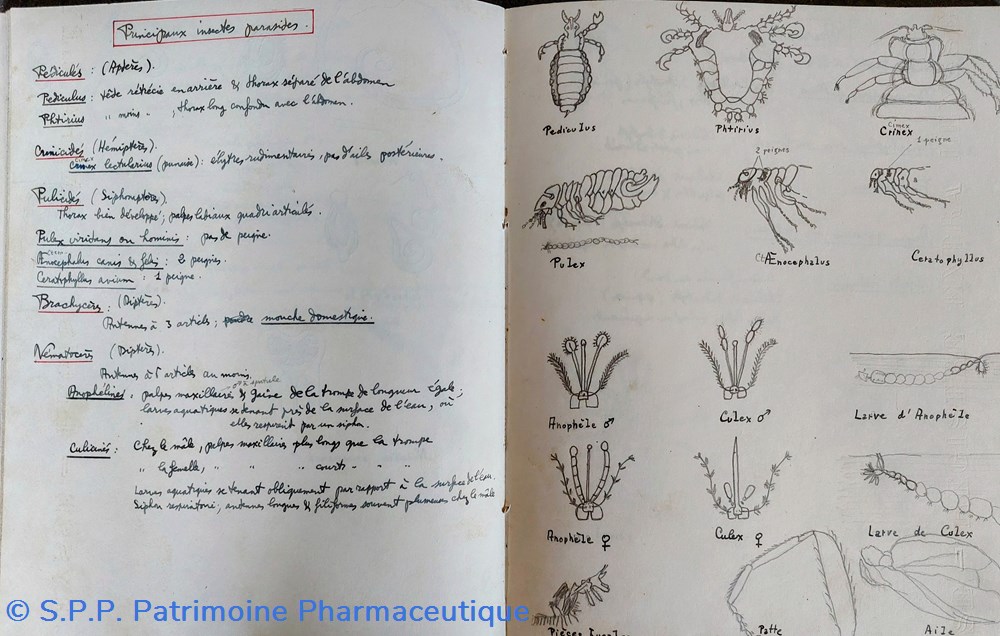 Principaux insectes parasites.
Pédiculés : (Aptères).
Pediculus : tête rétrécie en arrière & thorax séparé de l'abdomen
Phtirius " moins " , thorax long confondu avec l'abdomen.
Cimicidés (Hémiptères).
Cimex
lectularius (punaise) : élytres rudimentaires, pas d'ailes postérieures.
Pulicidés (Siphonoptères)
Thorax bien développé ; palpes labiaux quadriarticulés.
Pulex irritans ou hominis : pas de peigne.
canis & felis : 2 peignes.
Ceratophyllus avium : 1 peigne.
Brachycères : (Diptères).
Antennes à 3 articles ; mouche domestique.
Nématocères (Diptères).
Antennes à 6 articles au moins.
Anophélinés, palpes maxillaires & gaine de la trompe de longueur égale ;
larves aquatiques se tenant près de la surface de l'eau, où
elles respirent par un siphon.
Culicinés : Chez le mâle, palpes maxillaires plus longs que la trompe
" la femelle, " " " courts " " "
Larves aquatiques se tenant obliquement par rapport à la surface de l'eau.
Siphon respiratoire, antennes longues & filiformes souvent plumeuses chez le mâle
Pediculus
Phtirius
Cimex
Crinex
2 peignes
1 peigne
Pulex
Ænocephalus
Ceratophyllus
Anophèle ♂
Culex ♂
Larve d'Anophèle
Anophèle ♀
Culex ♀
Larve de Culex
Pièces
Patte
Aile
© S.P.P. Patrimoine Pharmaceutique